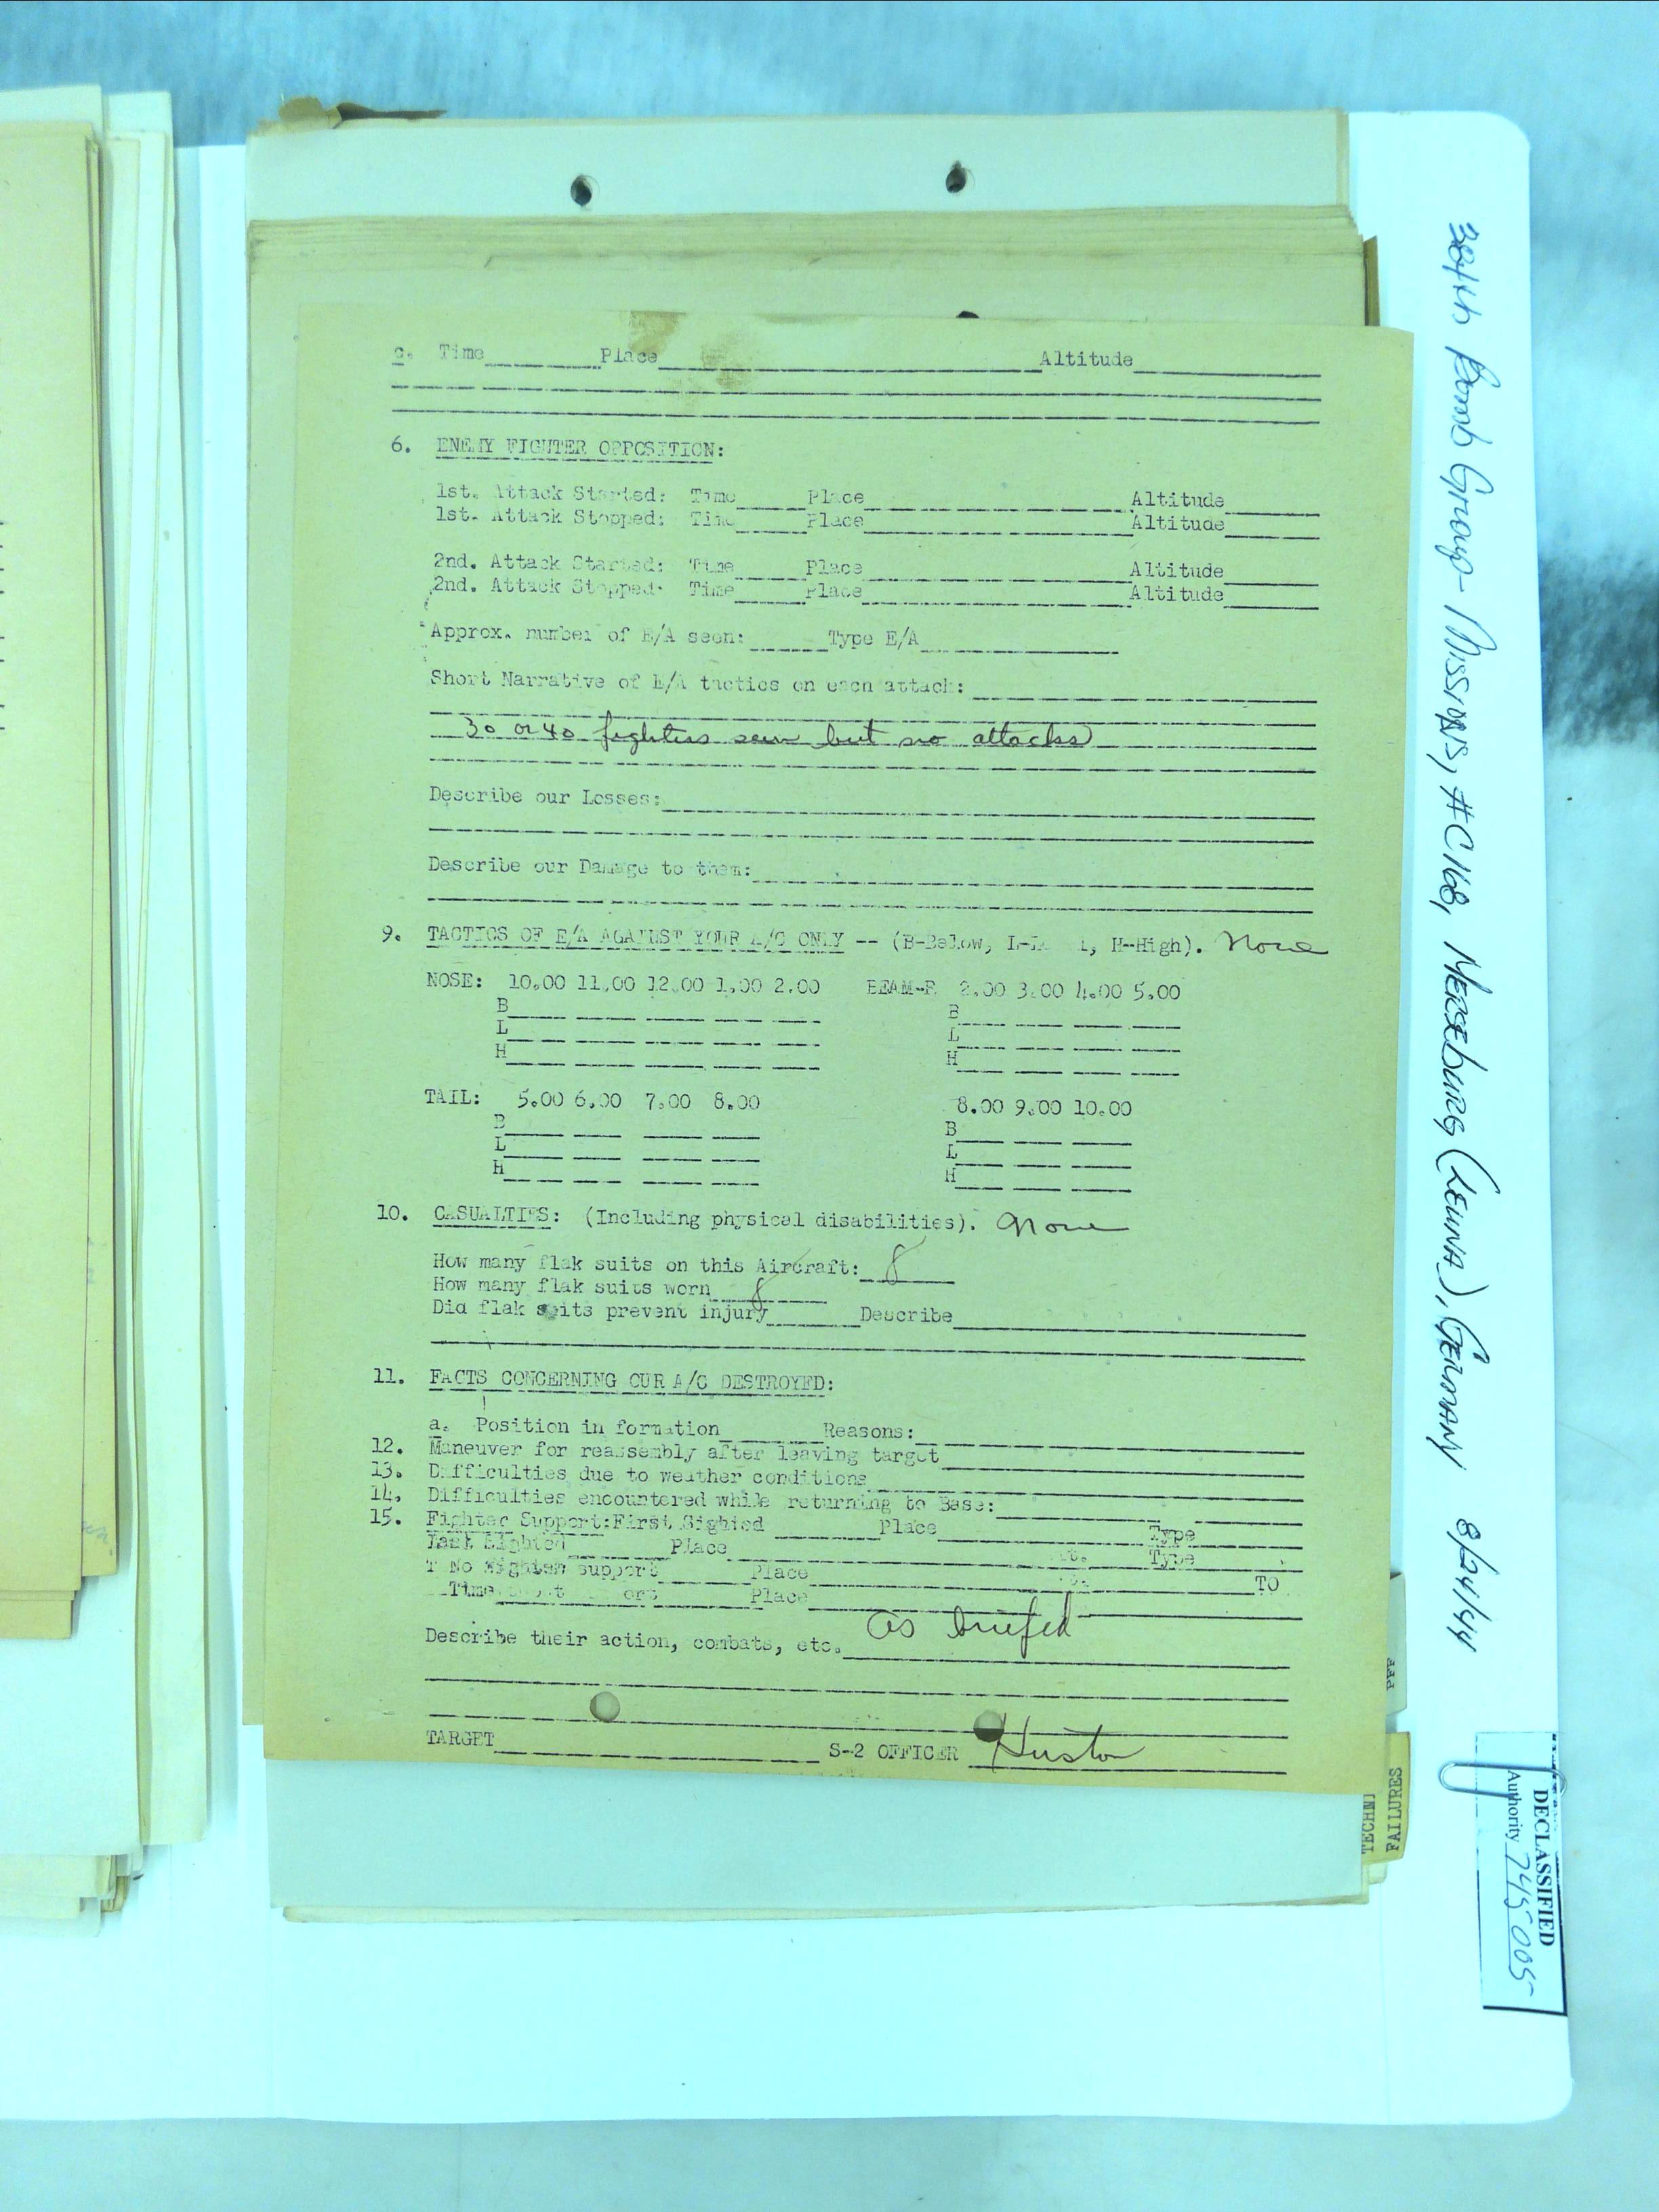 c. Time Place Altitude
6. ENEMY FIGHTER OPPOSITION:
1st. Attack Started: Time Place Altitude
1st. Attack Stopped: Time Place Altitude
2nd. Attack Started: Time Place Altitude
2nd. Attack Stopped: Time Place Altitude
Approx. number of E/A seen: Type E/A
Short Narrative of E/A tactics on each attack:
30 or 40 fighters seen but no attacks
Describe our Losses:
Describe our Damage to them:
9. TACTICS OF E/A AGAINST YOUR A/C ONLY -- (B-Below, L-L 1, H-High). None
NOSE: 10.00 11.00 12.00 1.00 2.00 BEAM-R 2.00 3.00 4.00 5.00
B B
L L
H H
TAIL: 5.00 6.00 7.00 8.00 8.00 9.00 10.00
B B
L L
H H
10. CASUALTIES: (Including physical disabilities). None
How many flak suits on this Aircraft: 8
How many flak suits worn 8
Did flak suits prevent injury Describe
11. FACTS CONCERNING OUR A/C DESTROYED:
a. Position in formation Reasons:
12. Maneuver for reassembly after leaving target
13. Difficulties due to weather conditions
14. Difficulties encountered while returning to Base:
15. Fighter Support: First Sighted Place Type
Last Sighted Place Type
No Fighter support Place TO
Time Place
Describe their action, combats, etc. as briefed
TARGET S-2 OFFICER Huston
384th Bomb Group - Missions, #C168, Merseburg (Leuna), Germany 8/24/44
PFF
TECHNI
FAILURES
DECLASSIFIED
Authority 745005